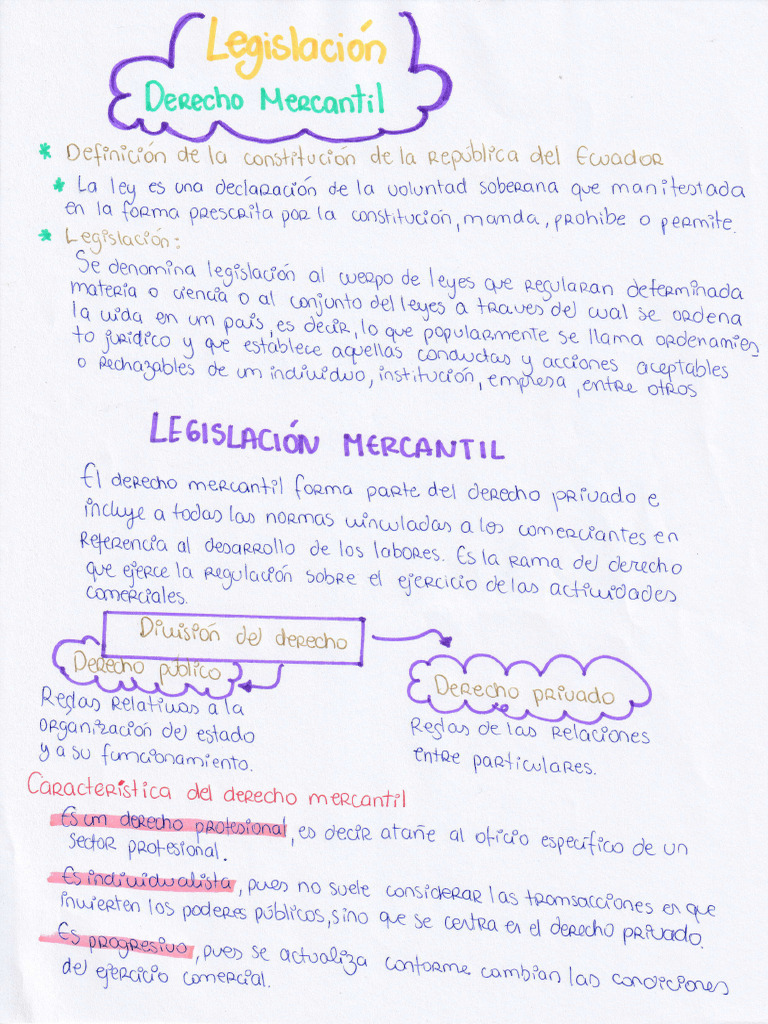 Legislación
Derecho Mercantil
* Definición de la constitución de la República del Ecuador
* La ley es una declaración de la voluntad soberana que manifestada
en la forma prescrita por la constitución, manda, prohibe o permite.
* Legislación:
Se denomina legislación al cuerpo de leyes que regularan determinada
materia o ciencia o al conjunto del leyes a traves del cual se ordena
la vida en un país, es decir, lo que popularmente se llama ordenamien
to jurídico y que establece aquellas conductas y acciones aceptables
o rechazables de un individuo, institución, empresa, entre otros
LEGISLACIÓN MERCANTIL
El derecho mercantil forma parte del derecho privado e
incluye a todas las normas vinculadas a los comerciantes en
referencia al desarrollo de los labores. Es la rama del derecho
que ejerce la regulación sobre el ejercicio de las actividades
comerciales.
División del derecho
Derecho público
Derecho privado
Reglas relativas a la
organización del estado
y a su funcionamiento.
Reglas de las relaciones
entre particulares.
Característica del derecho mercantil
Es un derecho profesional, es decir atañe al oficio específico de un
sector profesional.
Es individualista, pues no suele considerar las transacciones en que
invierten los poderes públicos, sino que se centra en el derecho privado.
Es progresivo, pues se actualiza conforme cambian las condiciones
del ejercicio comercial.